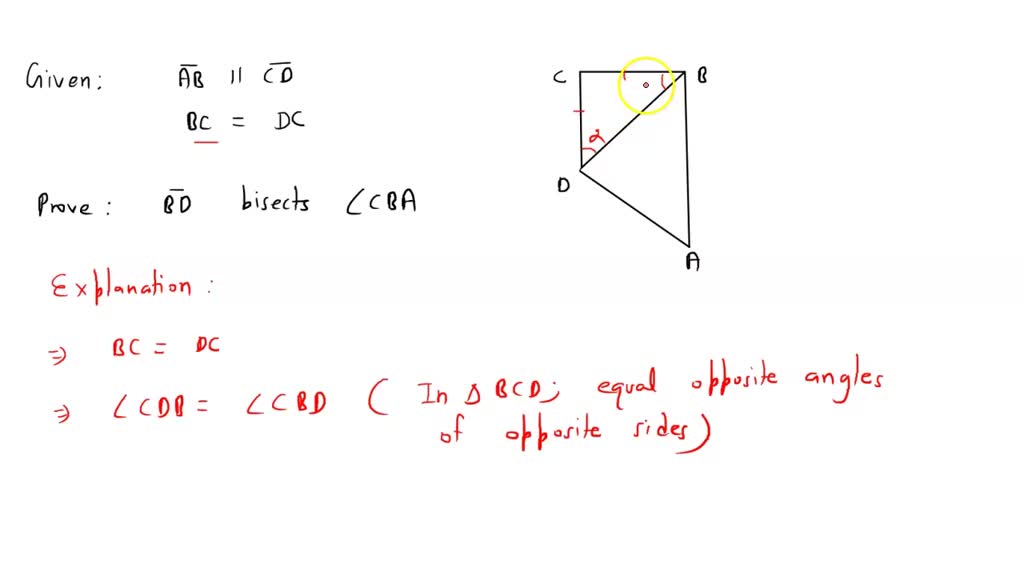 Given: A̅B̅ || C̅D̅
BC = DC
Prove: B̅D̅ bisects ∠CBA
Explanation:
⇒ BC = DC
⇒ ∠CDB = ∠CBD ( In △ BCD; equal opposite angles
of opposite sides)
C
B
α
D
A